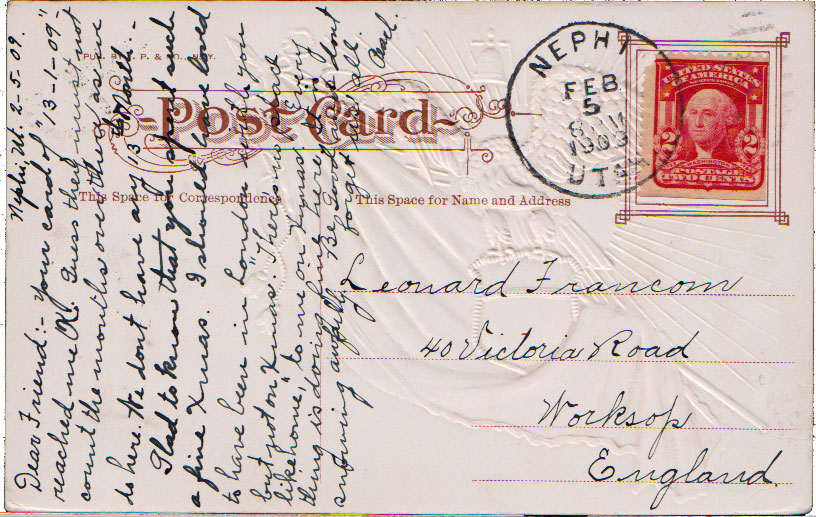 Nephi, Ut. 2-5-09.
Dear Friend:- Your card of "13-1-09"
reached me OK. Guess they must not
count the months over there as we
do here. We dont have any 13th Month:-
Glad to know that you spent such
a fine Xmas. I should have loved
to have been in London with you
but not on Xmas. "There's no place
like home," to me on Xmas. Every
thing is doing fine here. Its
snowing awfully. Be Good and dont
forget us all.
PUB. BY P. & CO.
Post Card
This Space for Correspondence
This Space for Name and Address
NEPHI
FEB
5
1909
UTAH
UNITED STATES
OF AMERICA
2 2
POSTAGE
TWO CENTS
Leonard Francom
40 Victoria Road
Worksop
England.